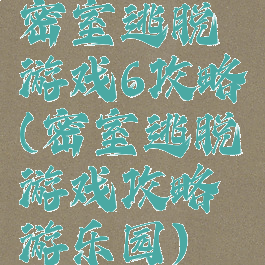 密室逃脱
游戏6攻略
(密室逃脱
游戏攻略
游乐园)